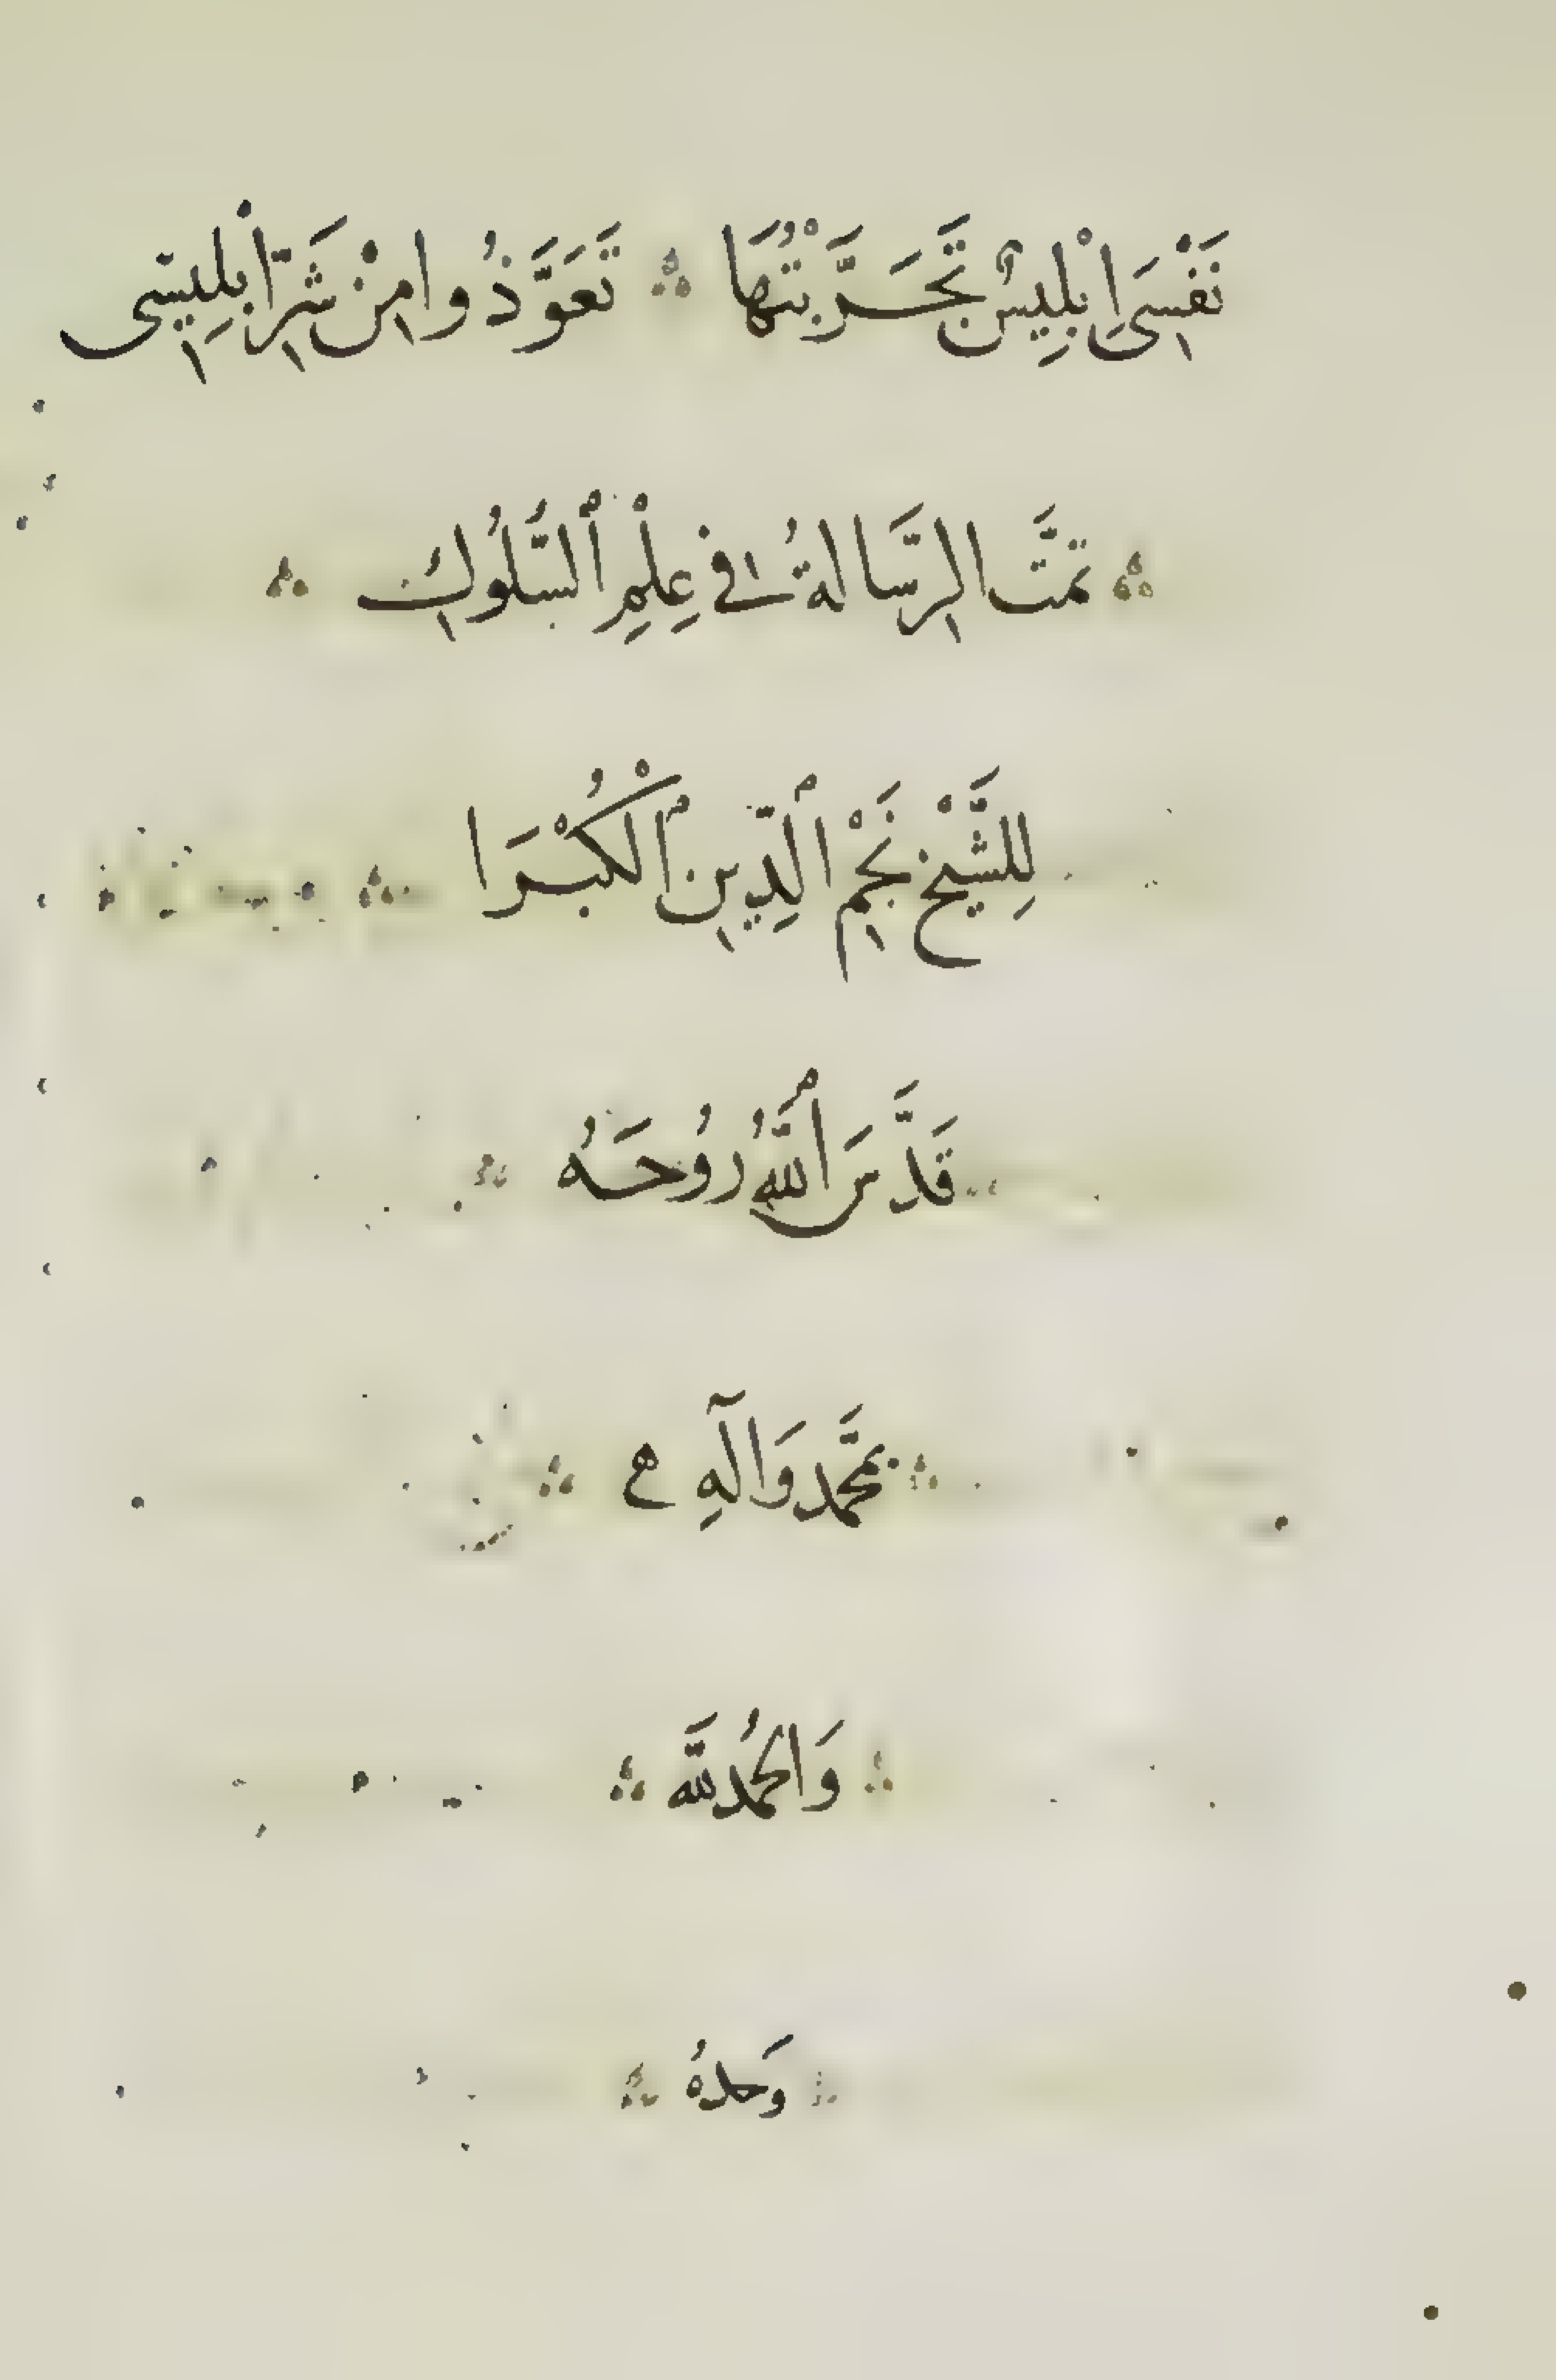 نَفْسِىَ اِبْلِيسٌ تَحَرَّبْتُهَا ؞ تَعَوَّذُوا مِنْ شَرِّ اَبْلِيسِى
؞ تَمَّتَ الرِّسَالةُ فِى عِلْمِ ٱلسُّلُوكِ ؞
لِلشَّيْخْ نَجْمِ ٱلدِّينِ ٱلْكُبْرَا ؞
قَدَّسَ ٱللّٰهُ رُوُحَهُ ؞
؞ بمُحَمَّد وَآلَهِ ؞
؞ وَالحمُد للَّه ؞
؞ وَحدهُ ؞